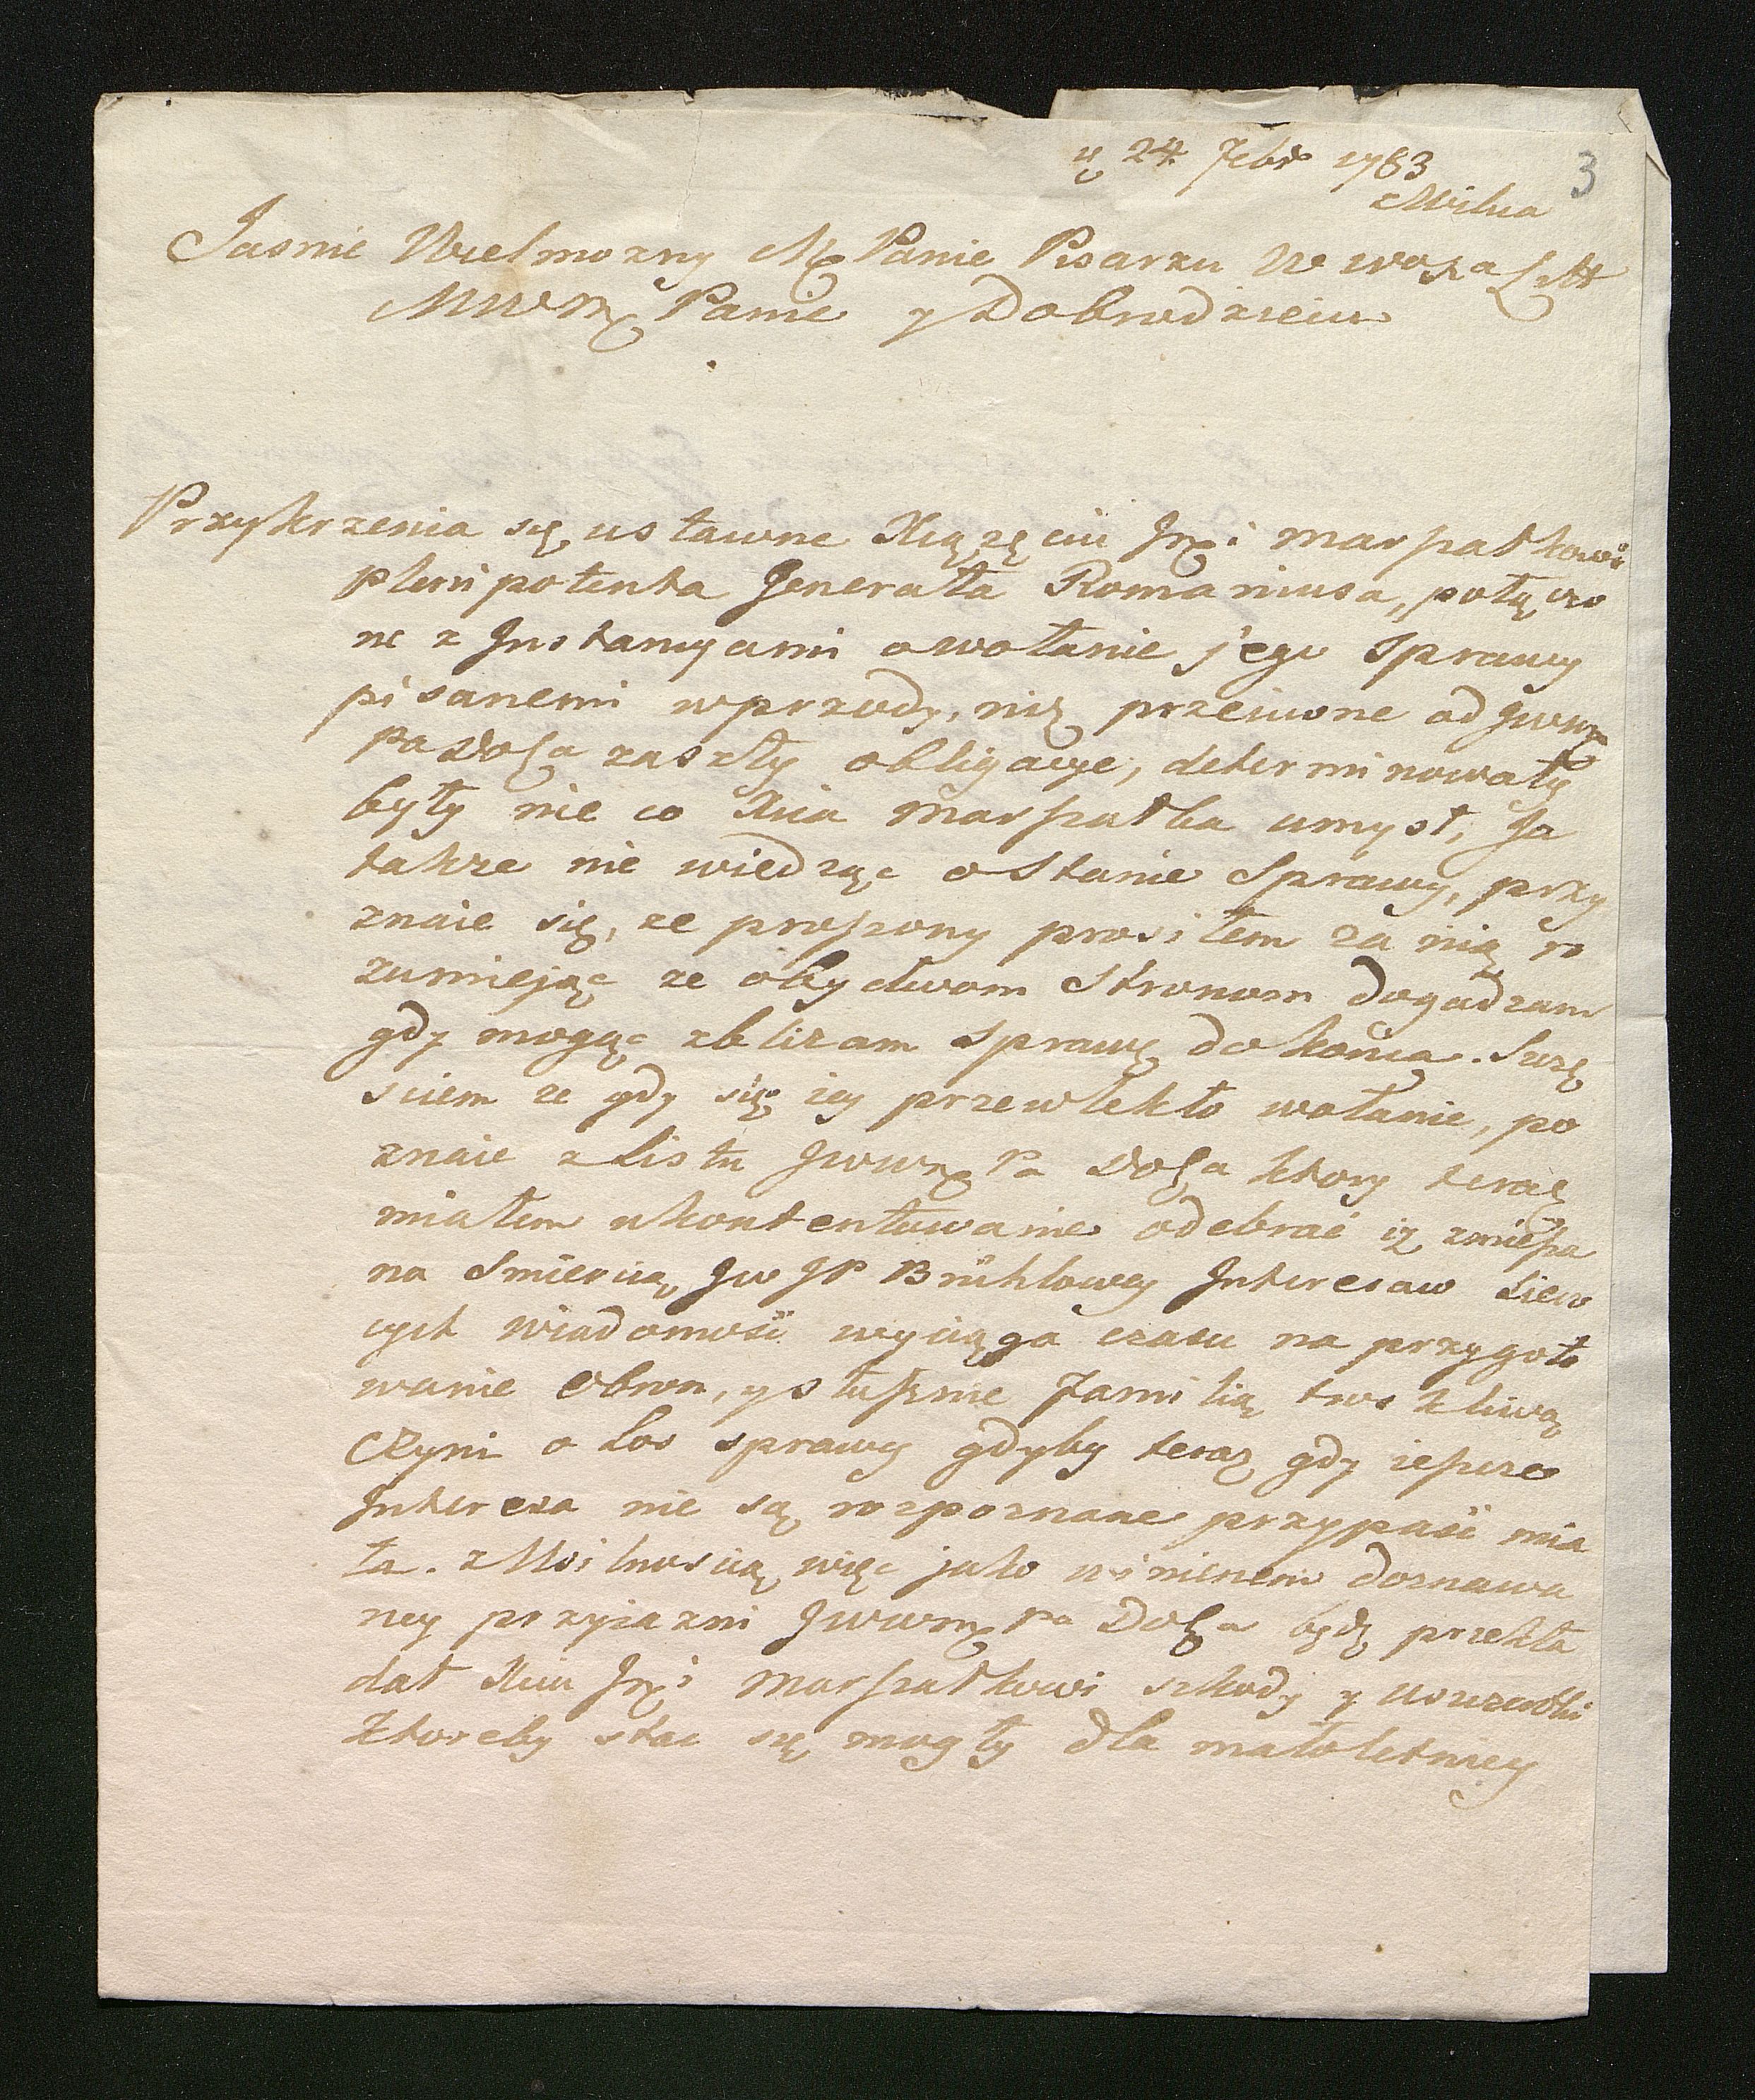 24. Febr 1763
3
z Wilna
Jasnie Wielmozny Mx Panie Pisarzu W
Panie y Dobrodzieiu
Przykrzenia się ustawne Xiązęciu Jmci Marszałkowi
plenipotenta Jenerała Romaniusa, połączo
ne z Instancyami o wołanie jego sprawy
pisanemi wprzody, niz przeciwne od
zaszły obligacye, determinowały
były nie co Xcia Marszałka umysł, Ja
takze nie wiedząc o stanie Sprawy, przy
znaie się, ze proszony prosiłem za nią ro
zumiejąc ze obydwom Stronom dogadzam
gdy mogąc zblizam Sprawę do końca. Szczę
sciem ze gdy się iey przewlekło wołanie, po
znaie z Listu Pa ktory teraz
miałem ukontentowanie odebrać iz zmiesza
na Smiercią Jw JP Brühlowey Interesow
cych wiadomość wyciąga czasu na przygoto
wanie obron, y słusznie Familią troskliwą
czyni o Los sprawy gdyby teraz gdy ieszcze
Interesa nie są rozpoznane przypaść mia
ła. z Usilnoscią więc jako winienem doznawa
ney przyiazni Pa będę przekła
dał Xciu Jmci Marszałkowi szkody y
ktoreby stac się mogły dla małoletniey